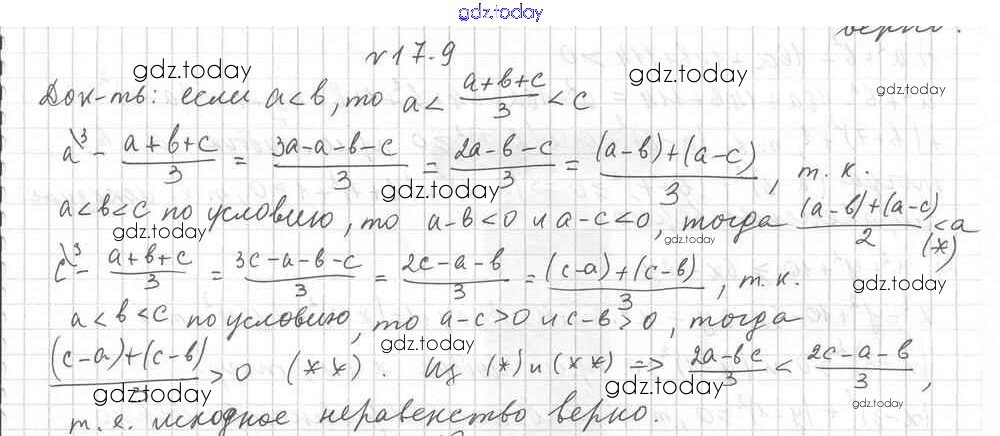 gdz.today
верно.
№17.9
gdz.today
gdz.today
gdz.today
Док-ть: если a<b, то a < (a+b+c)/3 < c
a\³ - (a+b+c)/3 = (3a-a-b-c)/3 = (2a-b-c)/3 = ((a-b)+(a-c))/3, т. к.
gdz.today
a<b<c по условию, то a-b<0 и a-c<0, тогда ((a-b)+(a-c))/2 <a (*)
gdz.today
gdz.today
c\³ - (a+b+c)/3 = (3c-a-b-c)/3 = (2c-a-b)/3 = ((c-a)+(c-b))/3, т. к.
gdz.today
a<b<c по условию, то a-c>0 и c-b>0, тогда
gdz.today
((c-a)+(c-b))/3 >0 (**). Из (*) и (**) => (2a-bc)/3 < (2c-a-b)/3,
gdz.today
gdz.today
gdz.today
т. е. исходное неравенство верно.